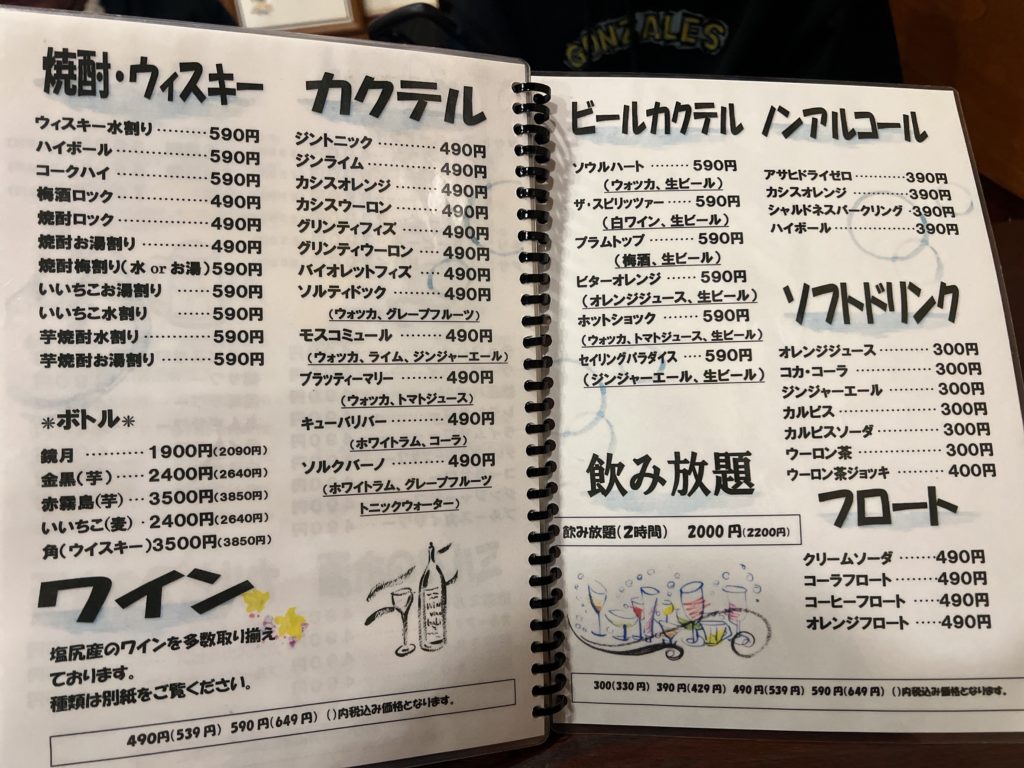 GONZALES
焼酎・ウィスキー
ウィスキー水割り ········· 590円
ハイボール ··············· 590円
コークハイ ··············· 590円
梅酒ロック ··············· 490円
焼酎ロック ··············· 490円
焼酎お湯割り ············ 490円
焼酎梅割り(水 or お湯)590円
いいちこお湯割り ······· 590円
いいちこ水割り ······· 590円
芋焼酎水割り ············ 590円
芋焼酎お湯割り ········· 590円
*ボトル*
鏡月 ·········· 1900円(2090円)
金黒(芋) ···· 2400円(2640円)
赤霧島(芋) ··· 3500円(3850円)
いいちこ(麦) · 2400円(2640円)
角(ウイスキー)3500円(3850円)
ワイン
塩尻産のワインを多数取り揃え
ております。
種類は別紙をご覧ください。
カクテル
ジントニック ············ 490円
ジンライム ··············· 490円
カシスオレンジ ········· 490円
カシスウーロン ········· 490円
グリンティフィズ ······ 490円
グリンティウーロン ···· 490円
バイオレットフィズ ···· 490円
ソルティドック ········· 490円
(ウォッカ、グレープフルーツ)
モスコミュール ········· 490円
(ウォッカ、ライム、ジンジャーエール)
ブラッティーマリー ···· 490円
(ウォッカ、トマトジュース)
キューバリバー ········· 490円
(ホワイトラム、コーラ)
ソルクバーノ ············ 490円
(ホワイトラム、グレープフルーツ
トニックウォーター)
490円(539円) 590円(649円) ()内税込み価格となります。
ビールカクテル
ソウルハート ········ 590円
(ウォッカ、生ビール)
ザ・スピリッツァー ····· 590円
(白ワイン、生ビール)
プラムトップ ········ 590円
(梅酒、生ビール)
ビターオレンジ ······ 590円
(オレンジジュース、生ビール)
ホットショック ······· 590円
(ウォッカ、トマトジュース、生ビール)
セイリングパラダイス ···· 590円
(ジンジャーエール、生ビール)
飲み放題
飲み放題(2時間) 2000円(2200円)
ノンアルコール
アサヒドライゼロ ············ 390円
カシスオレンジ ··············· 390円
シャルドネスパークリング · 390円
ハイボール ··················· 390円
ソフトドリンク
オレンジジュース ········· 300円
コカ・コーラ ··············· 300円
ジンジャーエール ········· 300円
カルピス ··················· 300円
カルピスソーダ ············ 300円
ウーロン茶 ················ 300円
ウーロン茶ジョッキ ······ 400円
フロート
クリームソーダ ······· 490円
コーラフロート ······· 490円
コーヒーフロート ····· 490円
オレンジフロート ····· 490円
300(330円) 390円(429円) 490円(539円) 590円(649円) ()内税込み価格となります。